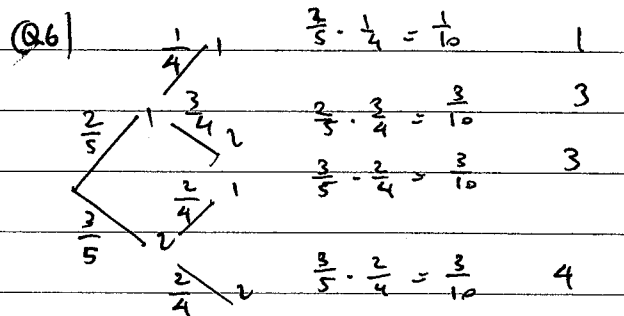 Q6
1/4 1 2/5 · 1/4 = 1/10 1
2/5 1 3/4 2 2/5 · 3/4 = 3/10 3
2/4 1 3/5 · 2/4 = 3/10 3
3/5 2
2/4 2 3/5 · 2/4 = 3/10 4